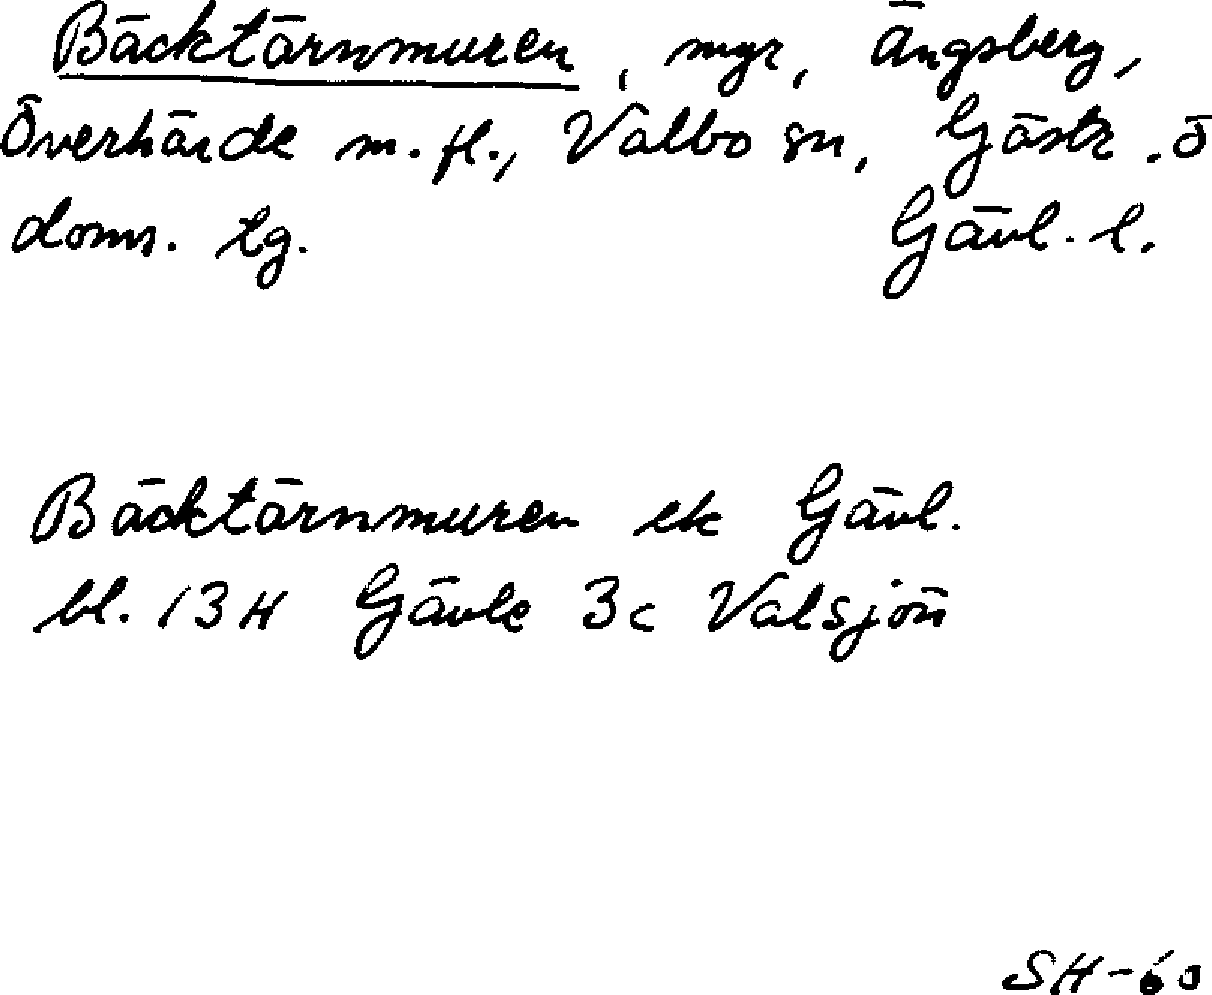 Bäcktärnmuren, myr, Ängsberg,
Överhärde m.fl., Valbo sn, Gästr. ö
doms. tg. Gävl. l.
Bäcktärnmuren ek Gävl.
bl. 13H Gävle 3c Valsjön
SH-60